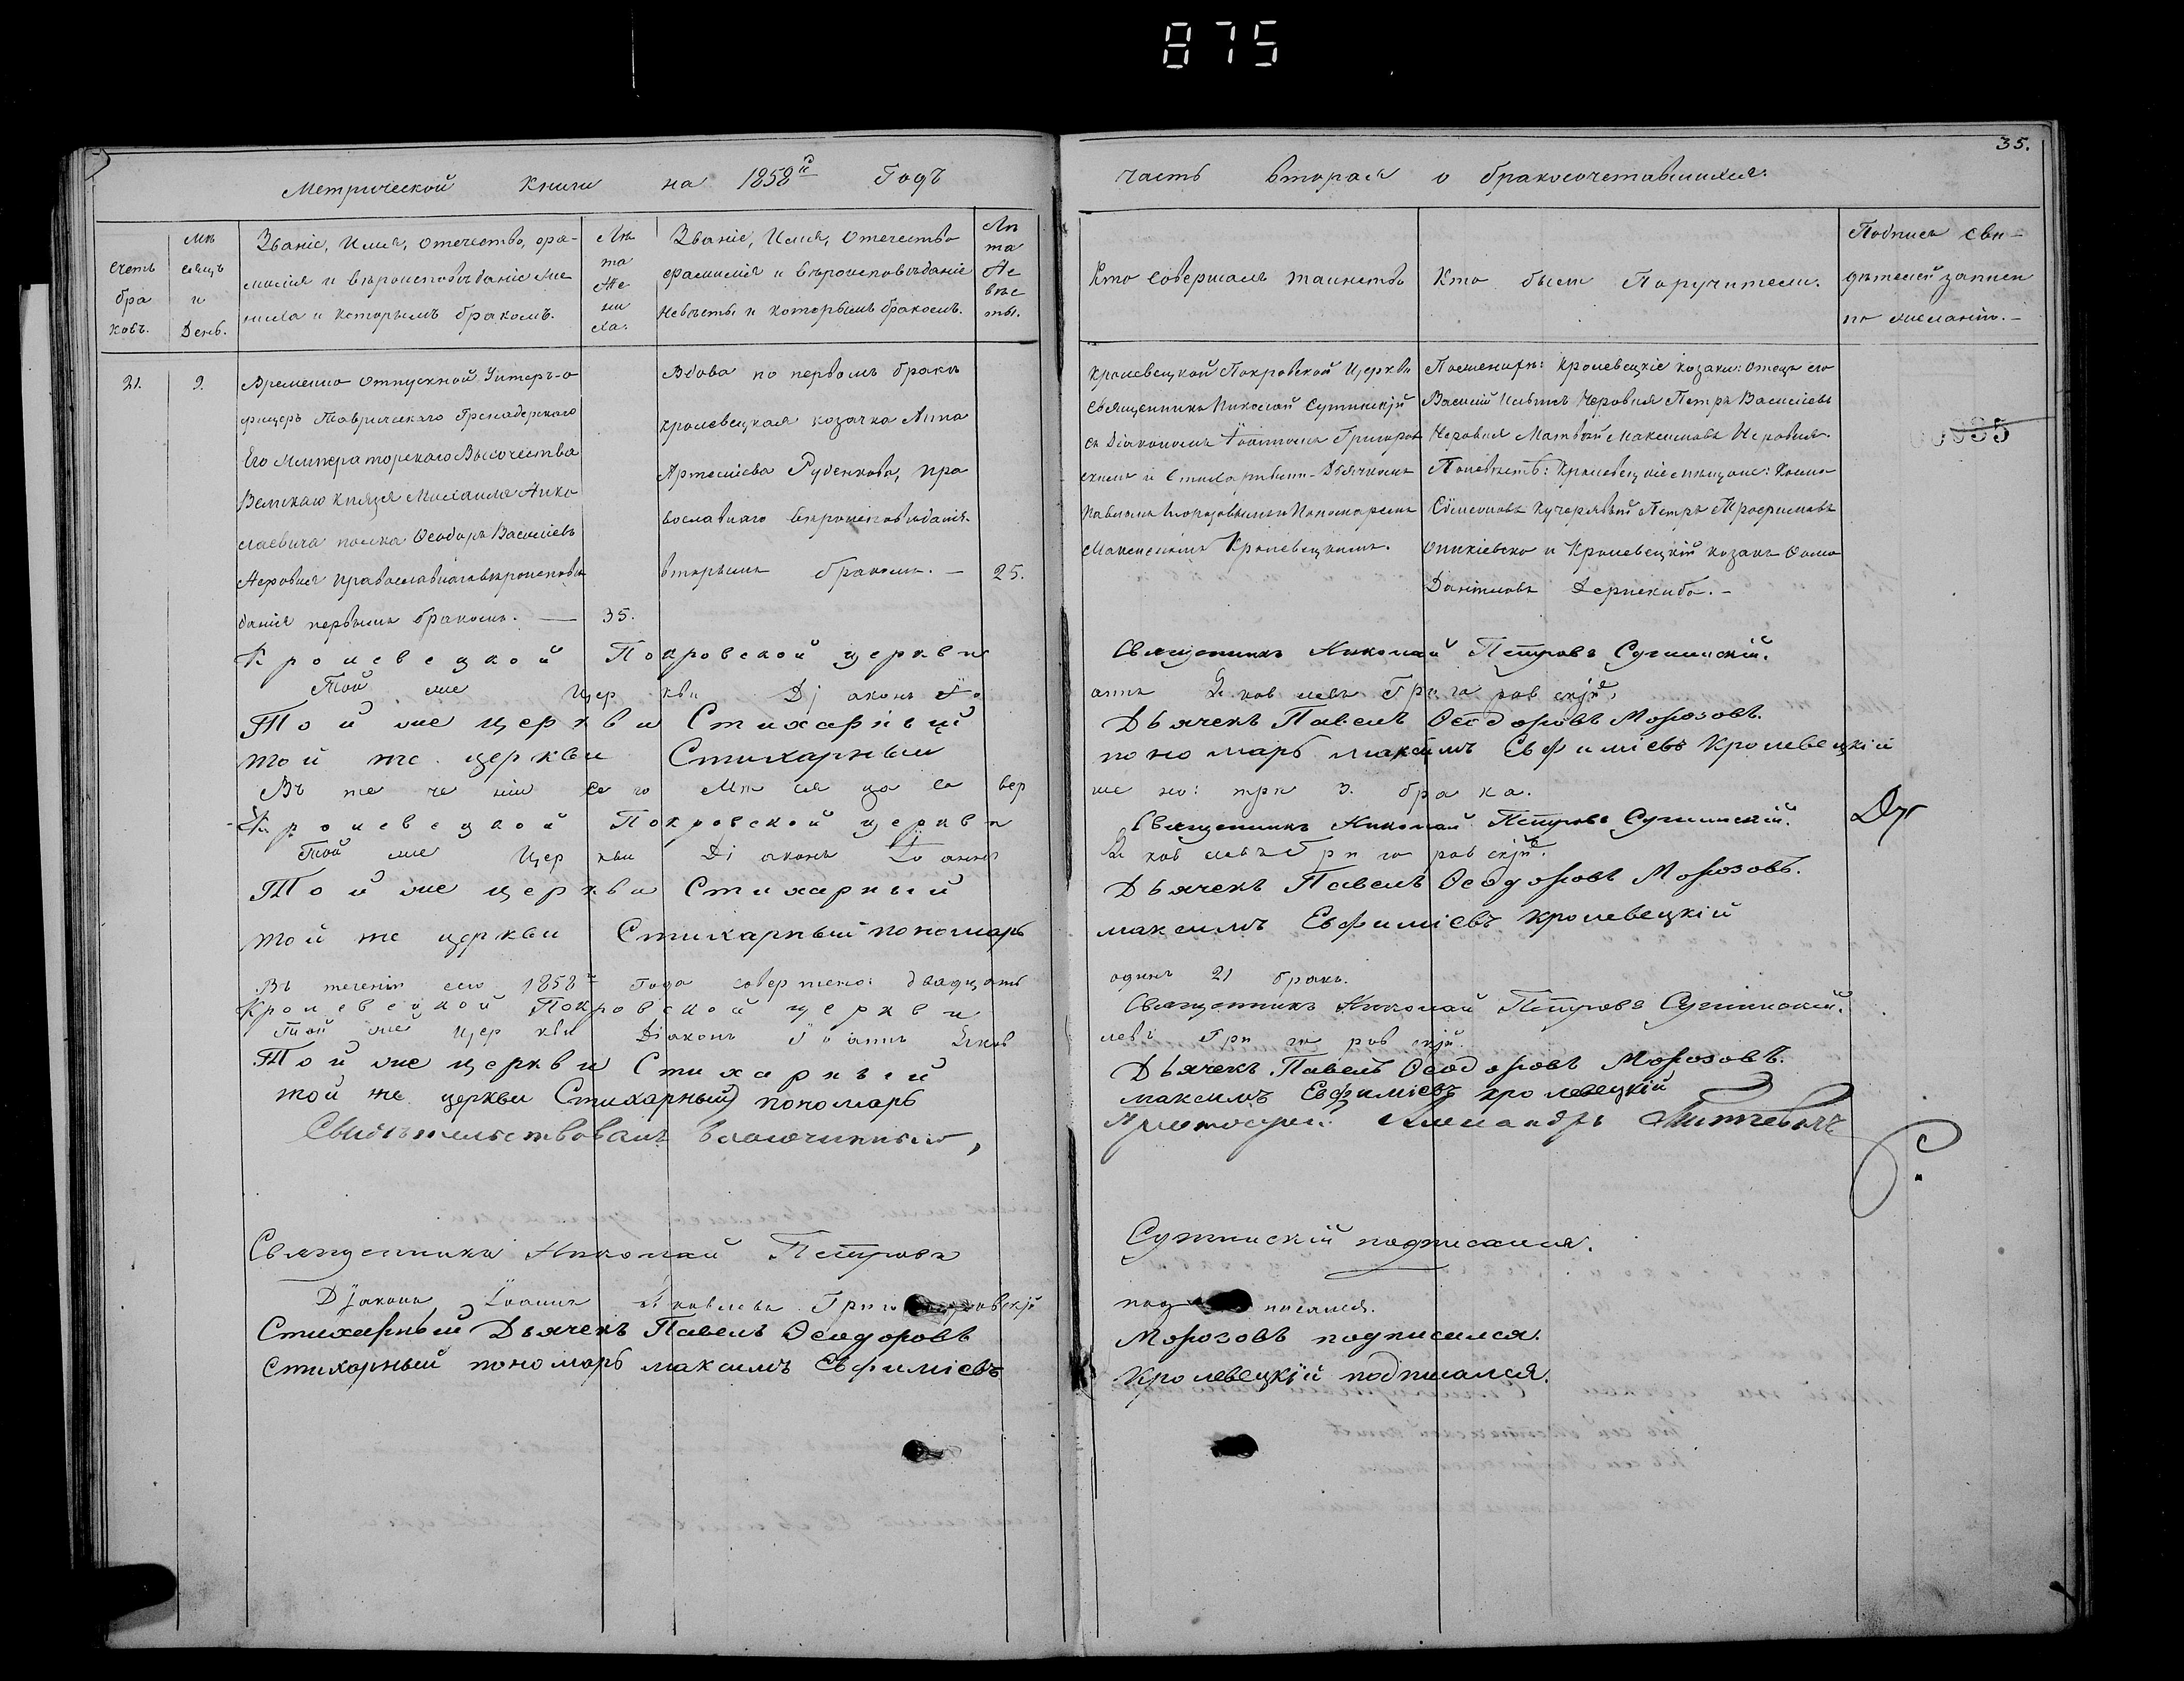 875
35.
Метрической книги на 1858й Годъ
часть вторая о бракосочетавшихся.
Счетъ браковъ.
Мѣсяцъ и День.
Званіе, Имя, Отечество, фа-
милія и вѣроисповѣданіе же-
ниха и которымъ бракомъ.
Лѣта Жениха.
Званіе, Имя, Отечество
фамилія и вѣроисповѣданіе
Невѣсты и которымъ бракомъ.
Лѣта Невѣсты.
Кто совершалъ таинство
Кто были Поручители.
Подпись сви-
дѣтелей записи
по желанію.-
21.
9.
Временно отпускной Унтеръ-о
фицеръ Таврическаго Гренадерскаго
Его Императорскаго Высочества
Великаго Князя Михаила Нико
лаевича полка Ѳеодоръ Васильевъ
православнаго вѣроисповѣ
данія первымъ бракомъ. —
35.
Вдова по первомъ бракѣ
кролевецкая козачка Анна
Артеміева Руденкова, пра
вославнаго вѣроисповѣданія.
вторымъ бракомъ. —
25.
Кролевецкой Покровской Церкви
Священникъ Николай
съ Діакономъ Іоанномъ Григоров
скимъ и Стихарными Дьячкомъ
Павломъ Морозовымъ и Пономаремъ
Максимомъ Кролевецкимъ.
По женихѣ: Кролевецкіе козаки: отецъ его
Василій Петръ Васильевъ
Матвѣй Максимовъ
По невѣстѣ: Кролевецкіе мѣщане: Косма
Симеоновъ Кучерявый Петръ Трофимовъ
и Кролевецкій козакъ Ѳома
Даніиловъ
35
Кролевецкой Покровской церкви
Священникъ Николай Петровъ
Той же Церкви Діаконъ Іо
аннъ Яковлевъ Григоровскій,
Той же церкви Стихарный
Дьячекъ Павелъ Ѳеодоровъ Морозовъ.
той же церкви Стихарный
пономарь максимъ Евфиміевъ кролевецкій
Въ теченіи сего Мѣсяца совер
шено: три 3. брака.
Кролевецкой Покровской церкви
Священникъ Николай Петровъ
Той же Церкви Діаконъ Іоаннъ
Яковлевъ Григоровскій.
Той же церкви Стихарный
Дьячекъ Павелъ Ѳеодоровъ Морозовъ.
той же церкви Стихарный пономарь
максимъ Евфиміевъ кролевецкій
Въ теченіи сего 1858го Года совершено: двадцать
одинъ 21 бракъ.
Кролевецкой Покровской церкви
Священникъ Николай Петровъ
Той же Церкви Діаконъ Іоаннъ Яков
левъ Григоровскій.
Той же церкви Стихарный
Дьячекъ Павелъ Ѳеодоровъ Морозовъ.
той же церкви Стихарный пономарь
максимъ Евфиміевъ кролевецкій
Свидѣтельствовалъ благочинный,
Протоіерей
Священникъ Николай Петровъ
подписался.
Діаконъ Іоаннъ Яковлевъ Григоровскій
подписался.
Стихарный Дьячекъ Павелъ Ѳеодоровъ
Морозовъ подписался.
Стихарный пономарь максимъ Евфиміевъ
Кролевецкій подписался.